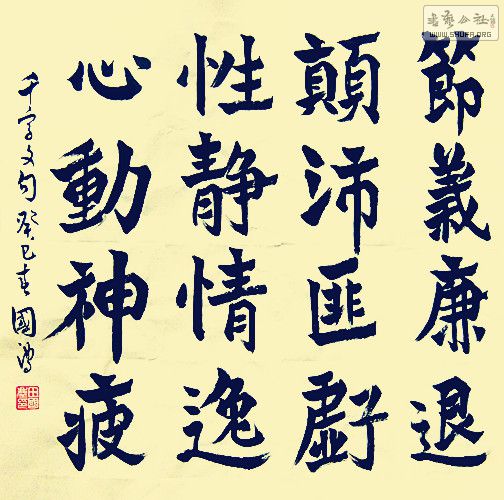 節義廉退
顛沛匪虧
性静情逸
心動神疲
千字文句癸巳春國
書藝公社
WWW.SHUFA.ORG